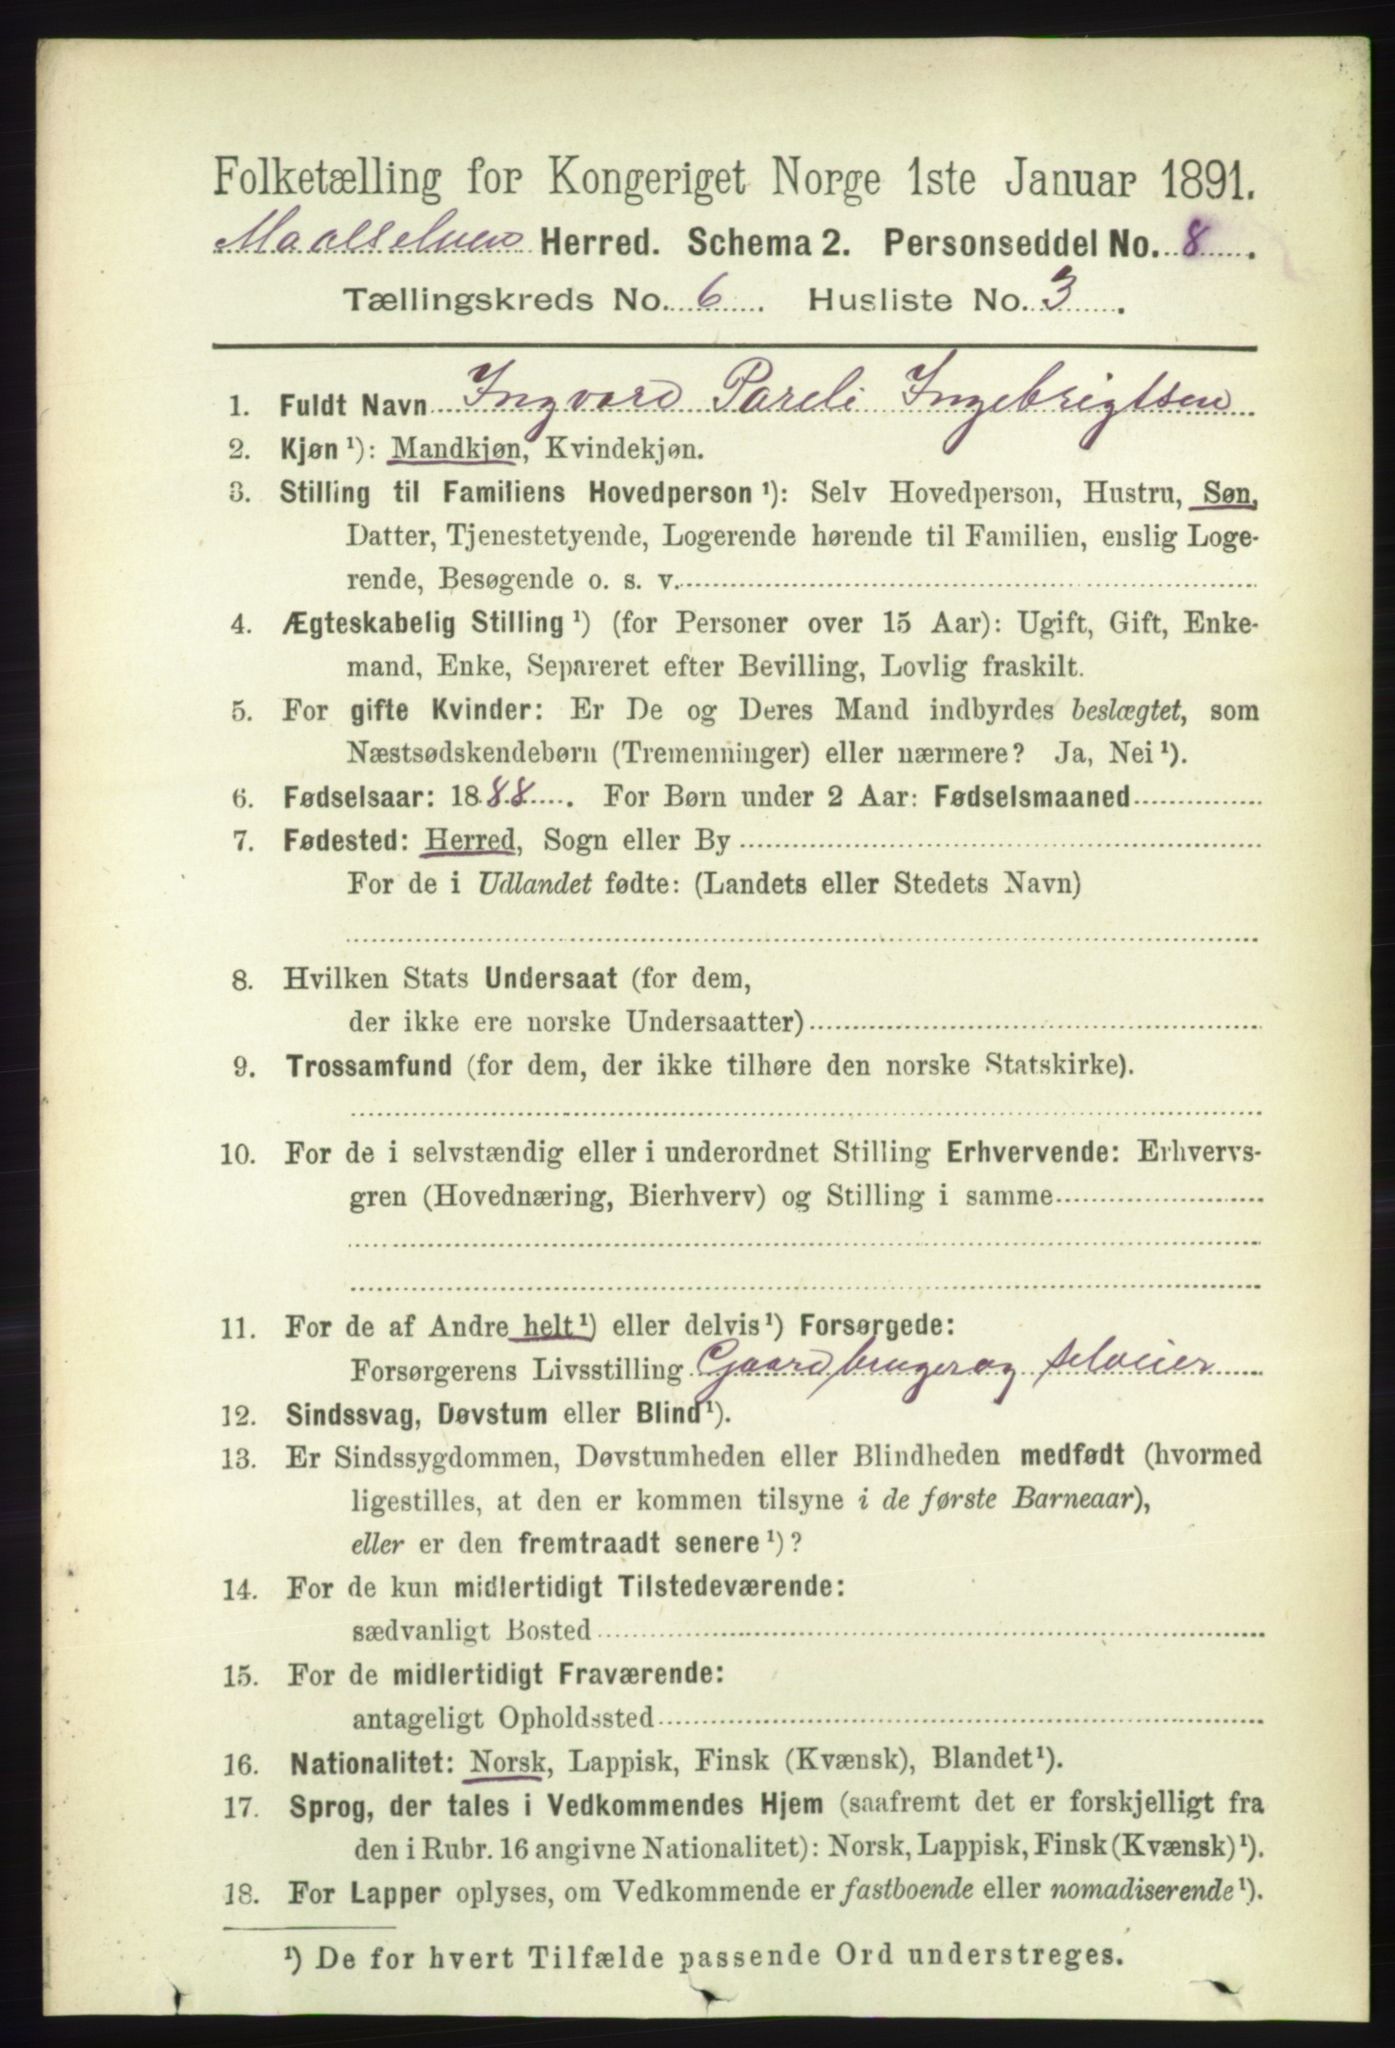 Folketælling for Kongeriget Norge 1ste Januar 1891.
Maalselven Herred. Schema 2. Personseddel No. 8.
Tællingskreds No. 6. Husliste No. 3.
1. Fuldt Navn Ingvard Pareli Ingebrigtsen
2. Kjøn ¹): Mandkjøn, Kvindekjøn.
3. Stilling til Familiens Hovedperson ¹): Selv Hovedperson, Hustru, Søn,
Datter, Tjenestetyende, Logerende hørende til Familien, enslig Loge-
rende, Besøgende o. s. v.
4. Ægteskabelig Stilling ¹) (for Personer over 15 Aar): Ugift, Gift, Enke-
mand, Enke, Separeret efter Bevilling, Lovlig fraskilt.
5. For gifte Kvinder: Er De og Deres Mand indbyrdes beslægtet, som
Næstsødskendebørn (Tremenninger) eller nærmere? Ja, Nei ¹).
6. Fødselsaar: 1888. For Børn under 2 Aar: Fødselsmaaned
7. Fødested: Herred, Sogn eller By
For de i Udlandet fødte: (Landets eller Stedets Navn)
8. Hvilken Stats Undersaat (for dem,
der ikke ere norske Undersaatter)
9. Trossamfund (for dem, der ikke tilhøre den norske Statskirke).
10. For de i selvstændig eller i underordnet Stilling Erhvervende: Erhvervs-
gren (Hovednæring, Bierhverv) og Stilling i samme
11. For de af Andre helt ¹) eller delvis ¹) Forsørgede:
Forsørgerens Livsstilling Gaardbruger og selveier
12. Sindssvag, Døvstum eller Blind ¹).
13. Er Sindssygdommen, Døvstumheden eller Blindheden medfødt (hvormed
ligestilles, at den er kommen tilsyne i de første Barneaar),
eller er den fremtraadt senere ¹)?
14. For de kun midlertidigt Tilstedeværende:
sædvanligt Bosted
15. For de midlertidigt Fraværende:
antageligt Opholdssted
16. Nationalitet: Norsk, Lappisk, Finsk (Kvænsk), Blandet ¹).
17. Sprog, der tales i Vedkommendes Hjem (saafremt det er forskjelligt fra
den i Rubr. 16 angivne Nationalitet): Norsk, Lappisk, Finsk (Kvænsk) ¹).
18. For Lapper oplyses, om Vedkommende er fastboende eller nomadiserende ¹).
¹) De for hvert Tilfælde passende Ord understreges.